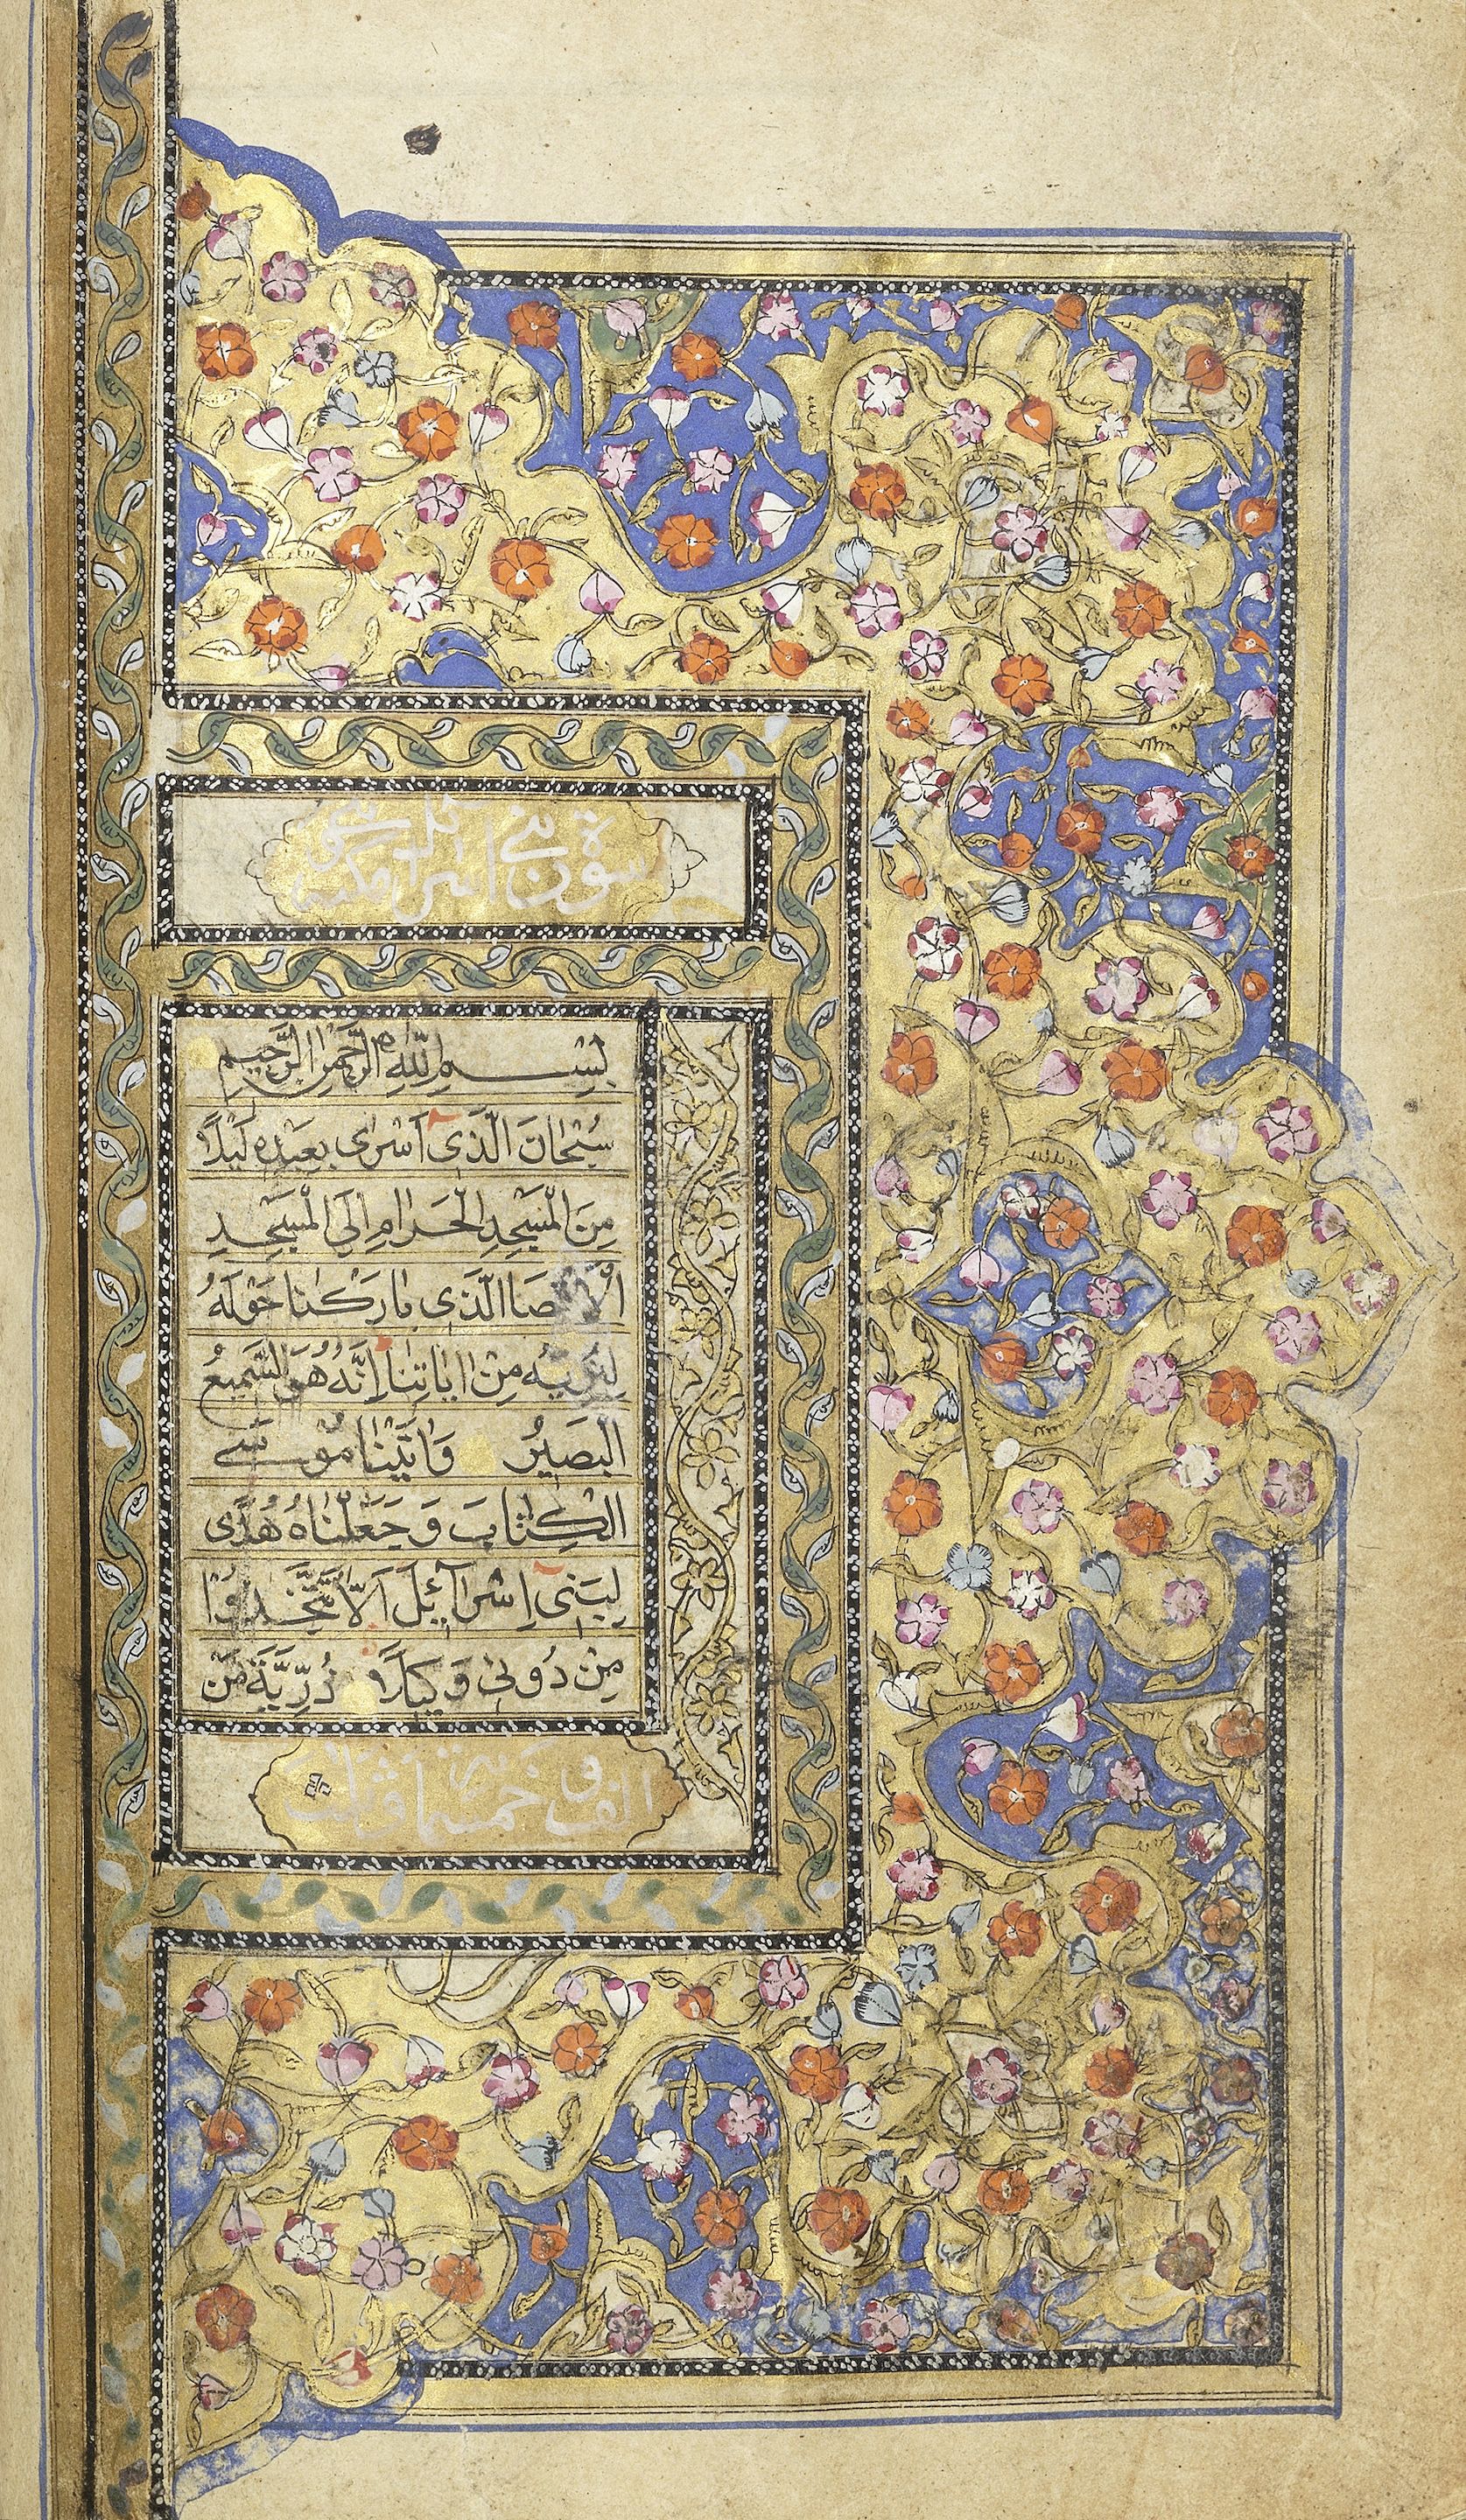 سورة بنی اسرائیل مکیة
بِسْمِ اللّٰهِ الرَّحْمٰنِ الرَّحِیمِ
سُبْحَانَ الَّذِی اَسْرٰی بِعَبْدِهِ لَیْلًا
مِنَ الْمَسْجِدِ الْحَرَامِ اِلَی الْمَسْجِدِ
الْاَقْصَا الَّذِی بَارَكْنَا حَوْلَهُ
لِنُرِیَهُ مِنْ اٰیَاتِنَا اِنَّهُ هُوَ السَّمِیعُ
الْبَصِیرُ وَاٰتَیْنَا مُوسَی
الْكِتَابَ وَجَعَلْنَاهُ هُدًی
لِبَنِیٓ اِسْرَآئِلَ اَلَّا تَتَّخِذُوا
مِنْ دُونِی وَكِیلًا ذُرِّیَّةَ مَنْ
الف و خمسمائة و ثلث